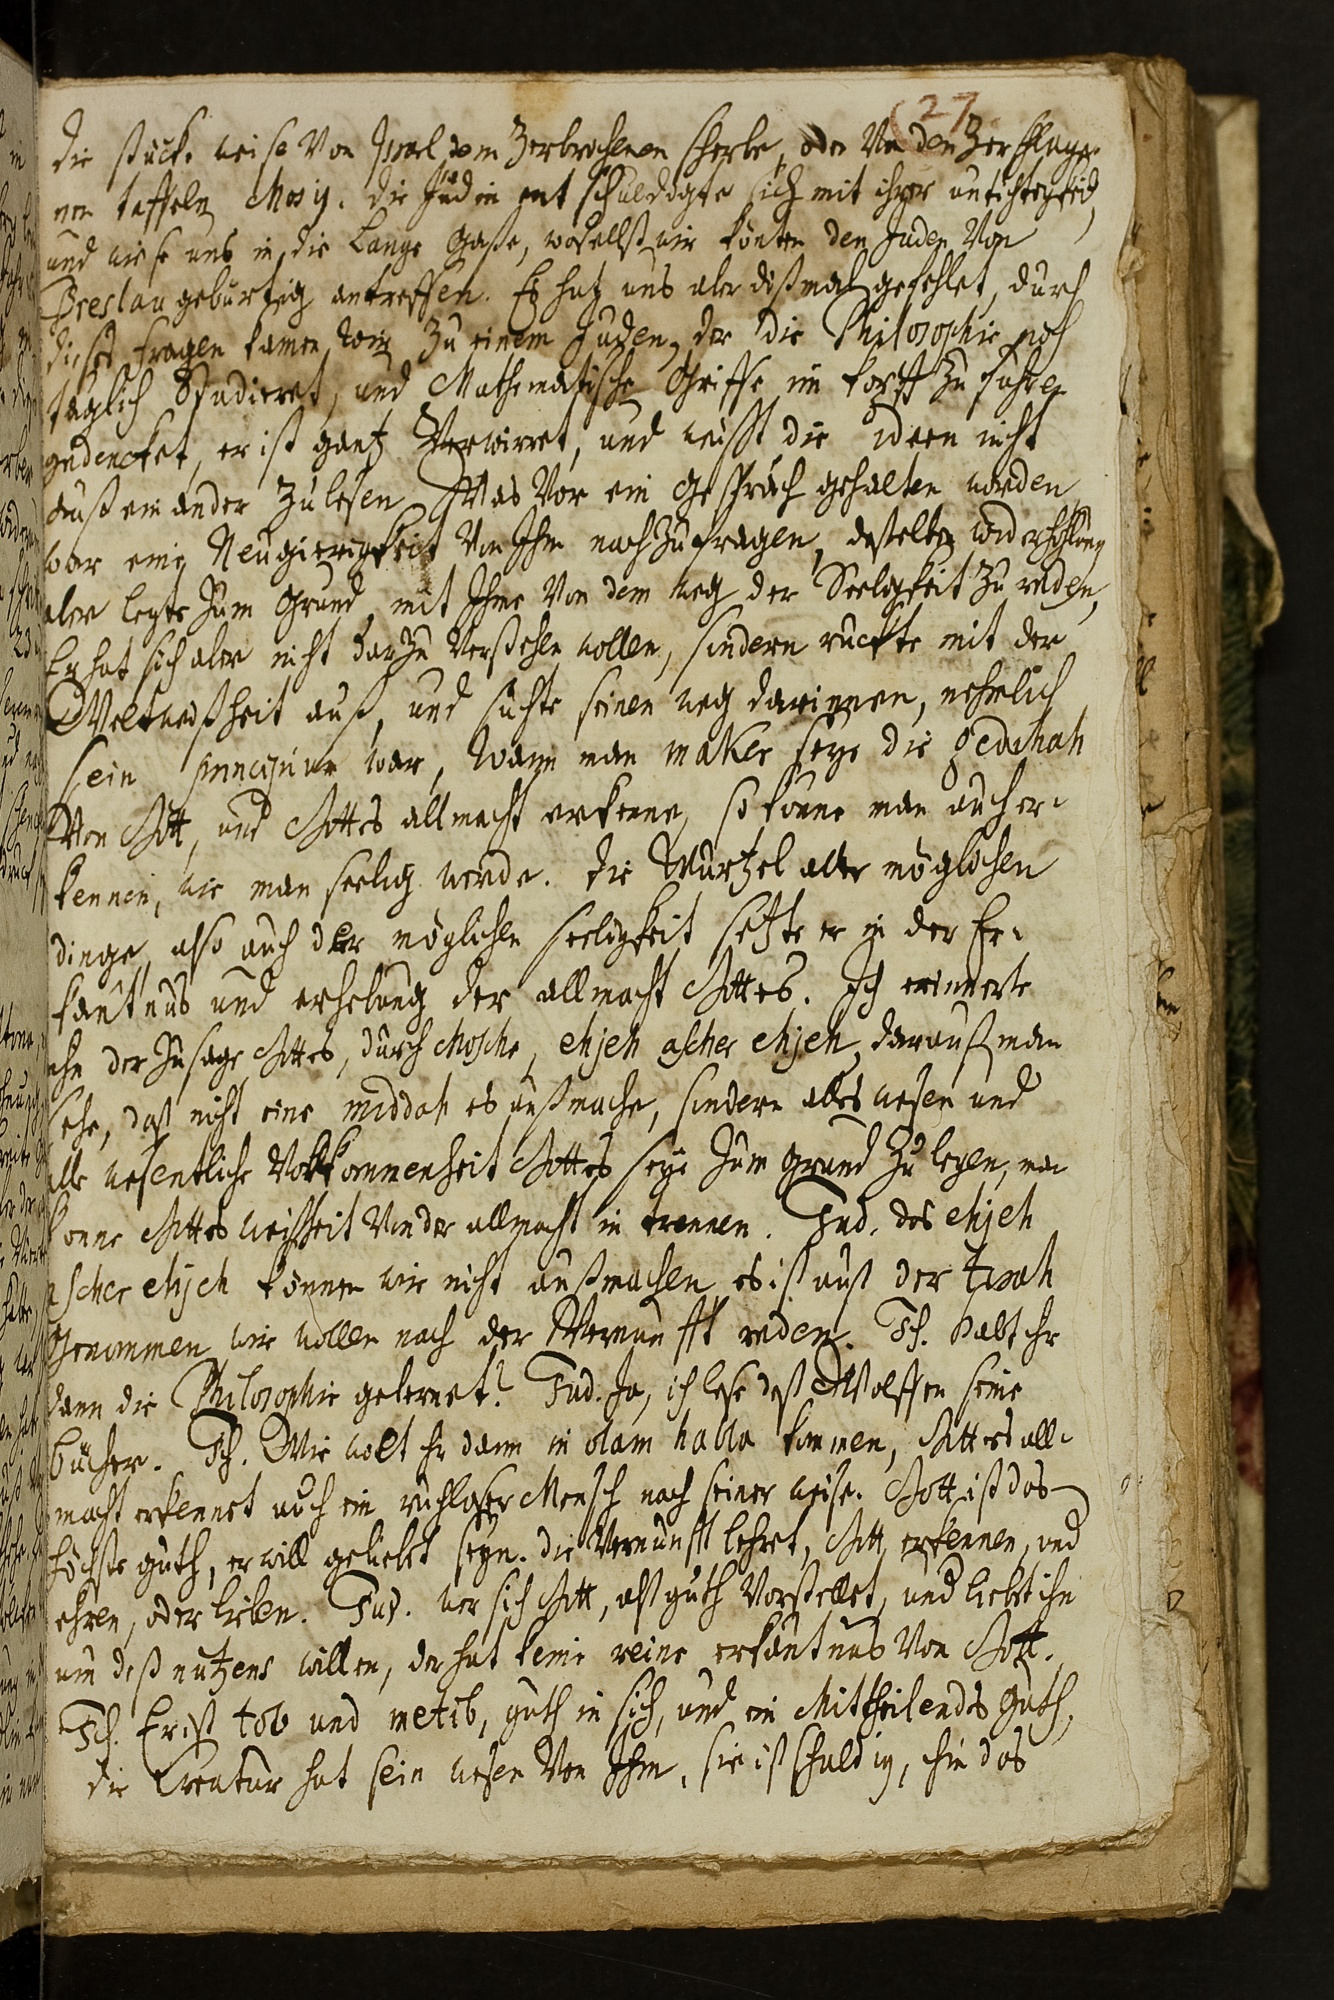 (27
die stück weise Von Israel dem Zerbrochenen scherbe, oder Von den Zerschlage-
nen taffeln Mosis. die Jüdin entschuldigte sich mit ihrer untichtigkeid,
und wiese uns in die Lange Gaße, woselbst wir könten den Juden Von
Breslau gebürtig antreffen. Es hat uns aber dißmal gefehlet, durch
dießes fragen kamen wir Zu einem Juden, der die Philosophie noch
täglich Studieret, und Mathematische Griffe im kopff Zu führen
gedencket, er ist gantz Verwirret, und weißt die ideen nicht
außeinander Zu lesen. Was Vor ein Gespräch gehalten worden
war eine Neugierigkeit Von Ihm nach Zu fragen, deßelben widerhohlung
aber legte Zum Grund mit Ihme Von dem weg der Seeligkeit Zu reden,
Er hat sich aber nicht darZu Verstehen wollen, sondern rückte mit der
Weltweißheit auß, und suchte seinen weg darinnen, nehmlich
sein principium war, wann man maker seye die gedulah
Von Gott, und Gottes allmacht erkenne, so könne man auch er-
kennen, wie man seelig werde. die Wurtzel aller möglichen
dinge, also auch der möglichen seeligkeit setzte er in der Er-
käntnus und erhebung der allmacht Gottes. Ich erinnerte
ihn der Zusage Gottes, durch Mosche, ehjeh ascher ehjeh, darauß man
sehe, daß nicht eine middah es außmache, sondern alles wesen und
alle wesentliche Vollkommenheit Gottes seye Zum Grund Zu legen, man
könne Gottes weißheit Von der allmacht nit trennen. Jud. das ehjeh
ascher ehjeh können wir nicht außmachen es ist auß der torah
Genommen wir wollen nach der Vernunfft reden. Ich. Habt ihr
dann die Philosophie gelernet? Jud. Ja, ich lese deß Wolffen seine
bücher. Ich. Wie wolt ihr dann in olam habba kommen, Gottes all-
macht erkennet auch ein ruchloser Mensch nach seiner weise. Gott ist das
höchste guth, er will geliebet seyn. die Vernunfft lehret, Gott erkennen, und
ehren, oder lieben. Jud. wer sich Gott, alß guth Vorstellet, und liebet ihn
um deß nutzens willen, der hat keine reine erkäntnus Von Gott.
Ich. Er ist tob und metib, guth in sich, und ein Mittheilendes Guth,
die Creatur hat sein wesen Von Ihm, sie ist schuldig, ihn das